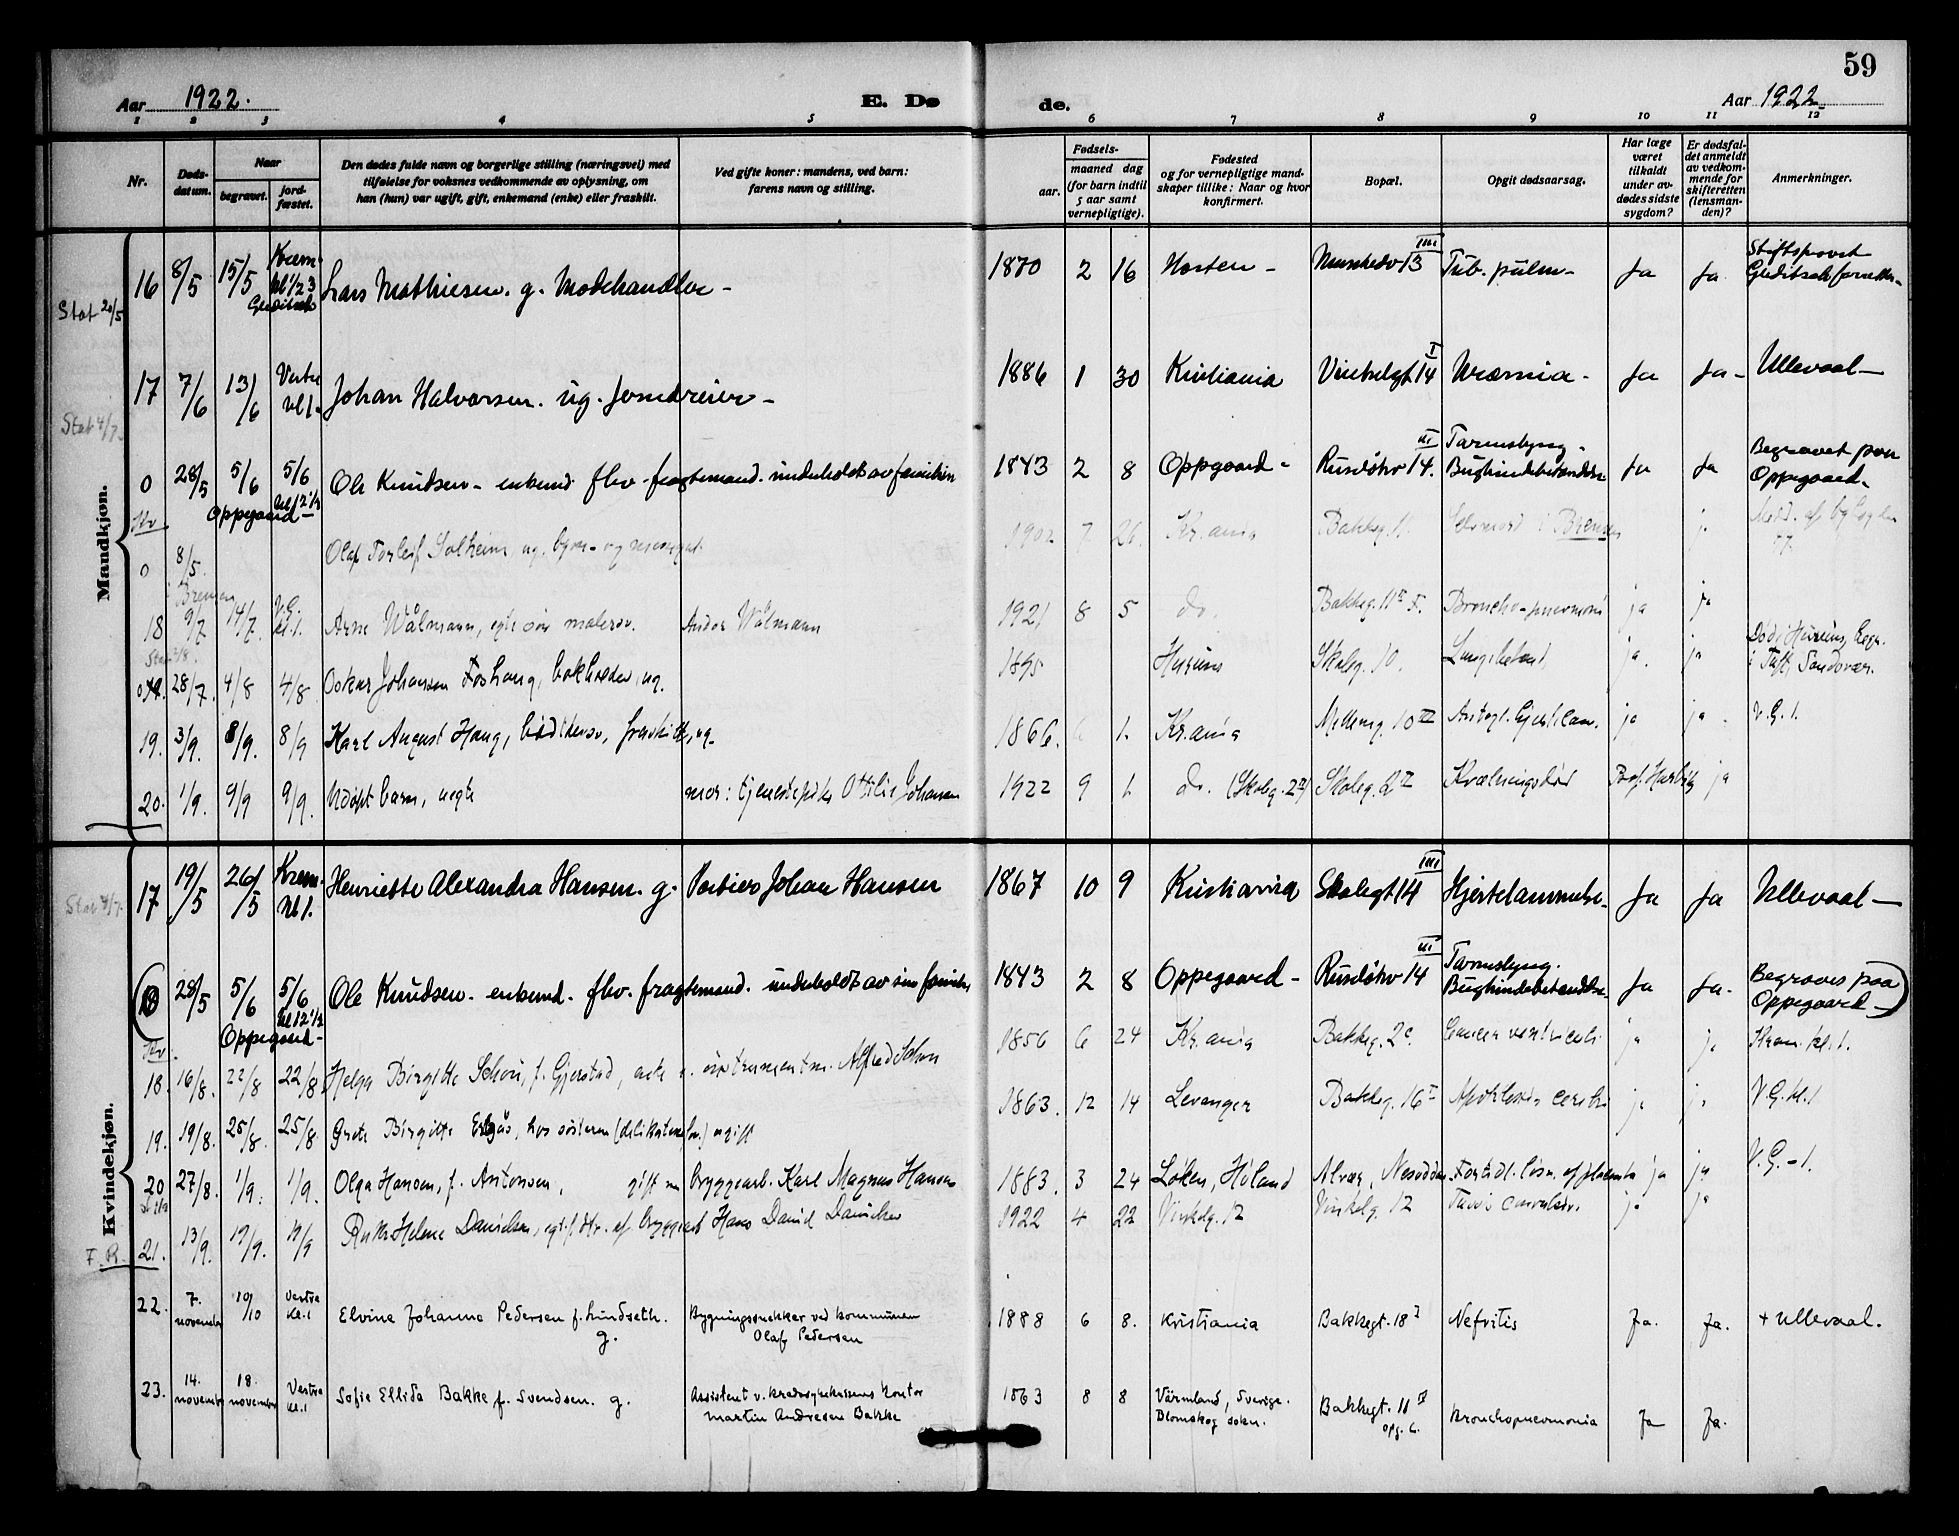 59
Aar 1922.
E. Dø
de.
Aar 1922.
1 2 3 4 5 6 7 8 9 10 11 12
Nr.
Døds-
datum.
Naar
begravet.
jord-
fæstet.
Den dødes fulde navn og borgerlige stilling (næringsvei) med
tilføielse for voksnes vedkommende av oplysning, om
han (hun) var ugift, gift, enkemand (enke) eller fraskilt.
Ved gifte koner: mandens, ved barn:
farens navn og stilling.
Fødsels-
aar.
maaned dag
(for barn indtil
5 aar samt
vernepligtige).
Fødested
og for vernepligtige mand-
skaper tillike: Naar og hvor
konfirmert.
Bopæl.
Opgit dødsaarsag.
Har læge
været
tilkaldt
under av-
dødes sidste
sygdom?
Er dødsfal-
det anmeldt
av vedkom-
mende for
skifteretten
(lensman-
den)?
Anmerkninger.
Mandkjøn.
16 8/5 15/5 Krem. kl 1/2 3 Lars Mathiesen. g. 1870 2 16 Horten - III Tub. pulm- Ja Ja Stiftsprovst
Stat 20/5
17 7/6 13/6 Vestre kl 1- Johan Halvorsen. ug. 1886 1 30 Kristiania Vinkelgt 14 I Uræmia- Ja Ja- Ullevaal-
Stat 4/7.
0 28/5 5/6 5/6 kl 12 1/2 Oppegaard- Ole Knudsen- enkemd. flhv. fragtemand. underholdt av familien 1843 2 8 Oppgaard- Ruseløkv 14. III Tarmslyng- Bughindebetændelse Ja Ja Begravet paa Oppegaard-
0 8/5. i Bremen Olaf Torleif Solheim ug. 1902 7 26 Kr.ania Bakkeg. 11. Selvmord i Bremen j.
18 9/7 14/7. V.G. kl. 1. Arne Wålmann, egte søn malersv. Andor Wålmann 1921 8 5 do. Bakkeg. 11 Broncho-pneumoni ja ja
28/7. 4/8 4/8 Oskar Johansen Foshaug, bokholder, ug. 1895 Hurum Skoleg. 10. ja. ja Død i Hurum, begr. i Tuft, Sandsvær.
19. 3/9. 8/9. 8/9 Karl August Haug, bødkersv, fraskilt, ug. 1866. 1. Kr.ania Møllerg. 10 III ja ja. V.G. 1.
20. 1/9. 9/9 9/9. Udøpt barn, uegte mor: tjenestepike Ottilie Johansen 1922 9 1. do. (Skoleg. 2 II) Skoleg. 2 II Kvælningsdød ja
Kvindekjøn.
17 19/5 26/5 Krem. kl 1. Henriette Alexandra Hansen. g. Portier Johan Hansen 1867 10 9 Kristiania Skolegt 14 III Hjertelammelse. Ja Ja Ullevaal-
Stat 4/7.
18 28/5 5/6 5/6 kl 12 1/2 Oppegaard- Ole Knudsen. enkemd. flhv. fragtemand. underholdt av sin familie 1843 2 8 Oppegaard- Ruseløkv 14 III Tarmslyng. Bughindebetændelse. Ja Ja. Begraves paa Oppegaard-
18. 16/8. 22/8 22/8 Helga Birgitte Schou, f. Gjerstad, enke e. instrumentm. Alfred Schou 1856 6 24 Kr.ania Bakkeg. 2 c. Cancer ventriculi. ja ja Krem. kl. 1.
19. 19/8. 25/8. 25/8. Grete Birgitte hos søsteren ugift 1863. 12 14 Levanger Bakkeg. 16 I Apoplexia cerebri ja V.G. kl. 1
20 27/8. 1/9. 1/9. Olga Hansen, f. Antonsen, gift m bryggearb. Karl Magnus Hansen 1883. 3 24 Løken, Høland Alvær, Nesodden. ja ja V.G.-1.
21. 13/9. 19/9. 19/9 Ruth Helene Danielsen, av bryggearb Hans Daniel Danielsen 1922 4 22 Vinkelg. 12 Vinkelg. 12 ja ja
F.R.
22. 7. november 10/10 Vestre kl. 1 Elvina Johanna Pedersen f. Lundseth. g. Bygningssnekker ved kommunen Olaf Pedersen 1888 6 8. Kristiania Bakkegt. 18 I Nefritis Ja. Ja. + Ullevaal.
23. 14. november 18. november Vestre kl. 1 Sofie Ellida Bakke f. Svendsen. g. Assistent v. kredssykekassens kontor Martin Andresen Bakke 1863 8 8 Värmland, Sverige. Blomskog soken. Bakkegt. 11 opg. C. Bronchopneumonia Ja Ja.